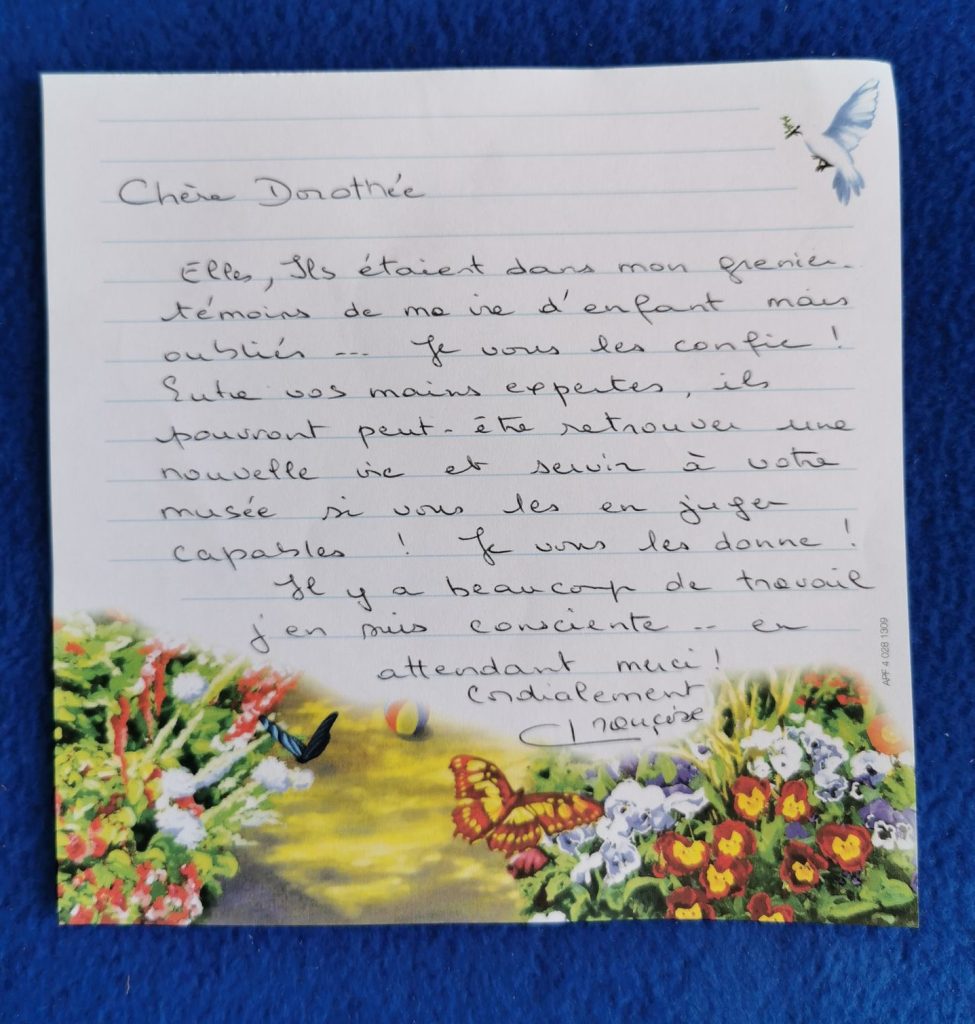 Chère Dorothée
Elles, Ils étaient dans mon grenier.
témoins de ma vie d'enfant mais
oubliés ... Je vous les confie !
Entre vos mains expertes, ils
pourront peut-être retrouver une
nouvelle vie et servir à votre
musée si vous les en juger
capables ! Je vous les donne !
Il y a beaucoup de travail
j'en suis consciente .. en
attendant merci !
Cordialement
Françoise
APF 4 028 1309